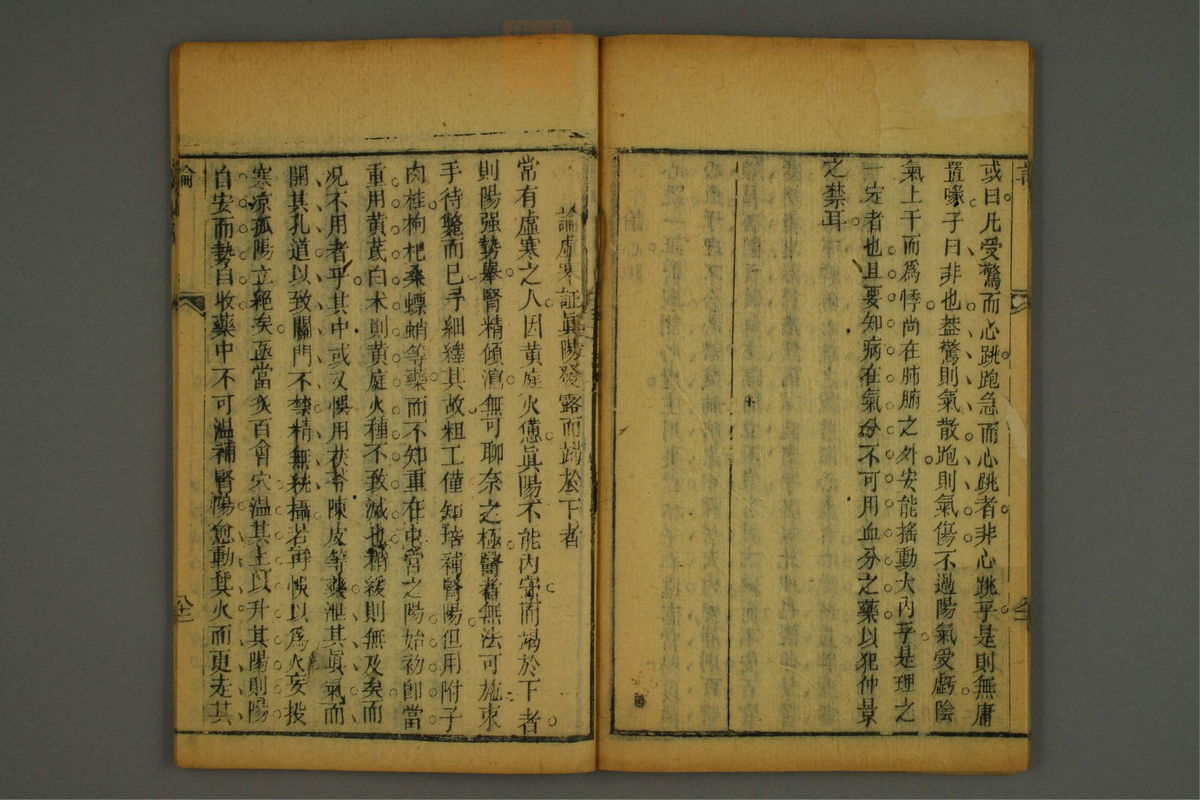 或曰凡受驚而心跳跑急而心跳者非心跳乎是則無庸
置喙子曰非也葢驚則氣散跑則氣傷不過陽氣受虧陰
氣上干而爲悸尚在肺腑之外安能搖動大內乎是理之
一定者也且要知病在氣分不可用血分之藥以犯仲景
之禁耳
論虛寒証眞陽發露而竭於下者
常有虛寒之人因黄庭火憊眞陽不能內守而竭於下者
則陽强勢舉腎精傾瀉無可聊奈之極醫者無法可施束
手待斃而已予細繹其故粗工僅知培補腎陽但用附子
肉桂枸杞桑螵蛸等藥而不知重在中宮之陽始初卽當
重用黄茋白朮則黄庭火種不致滅也稍緩則無及矣而
况不用者乎其中或又悞用茯苓陳皮等藥泄其眞氣而
開其孔道以致關門不禁精無統攝若再悞以爲火妄投
寒凉孤陽立絕矣亟當灸百會穴温其上以升其陽則陽
自安而勢自收藥中不可温補腎陽愈動其火而更走其